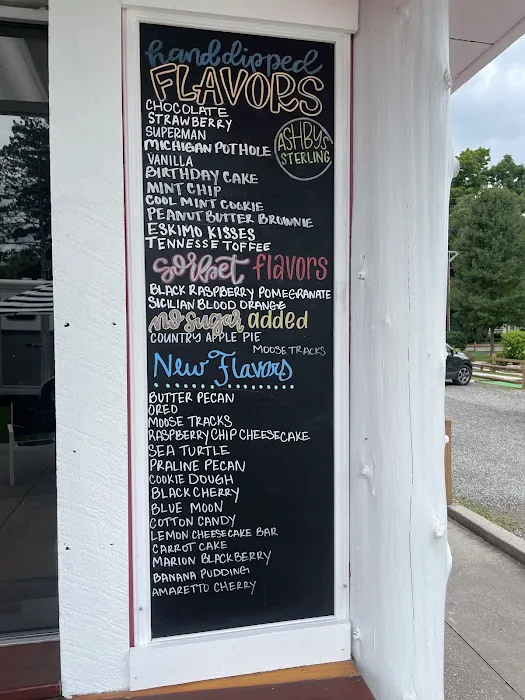 hand dipped
FLAVORS
CHOCOLATE
STRAWBERRY
SUPERMAN
MICHIGAN POTHOLE
VANILLA
BIRTHDAY CAKE
MINT CHIP
COOL MINT COOKIE
PEANUT BUTTER BROWNIE
ESKIMO KISSES
TENNESSE TOFFEE
ASHBYS
STERLING
sorbet flavors
BLACK RASPBERRY POMEGRANATE
SICILIAN BLOOD ORANGE
no sugar added
COUNTRY APPLE PIE
MOOSE TRACKS
New Flavors
BUTTER PECAN
OREO
MOOSE TRACKS
RASPBERRY CHIP CHEESECAKE
SEA TURTLE
PRALINE PECAN
COOKIE DOUGH
BLACK CHERRY
BLUE MOON
COTTON CANDY
LEMON CHEESECAKE BAR
CARROT CAKE
MARION BLACKBERRY
BANANA PUDDING
AMARETTO CHERRY